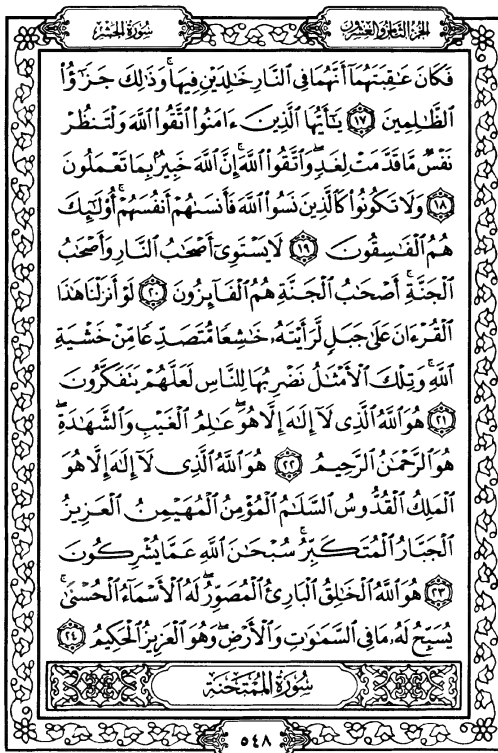 سُورَةُ الحَشْرِ
الجُزْءُ الثَّامِنُ وَالعِشْرُونَ
فَكَانَ عَٰقِبَتَهُمَآ أَنَّهُمَا فِى ٱلنَّارِ خَٰلِدَيْنِ فِيهَا ۚ وَذَٰلِكَ جَزَٰٓؤُا۟
ٱلظَّٰلِمِينَ ١٧ يَٰٓأَيُّهَا ٱلَّذِينَ ءَامَنُوا۟ ٱتَّقُوا۟ ٱللَّهَ وَلْتَنظُرْ
نَفْسٌ مَّا قَدَّمَتْ لِغَدٍ ۖ وَٱتَّقُوا۟ ٱللَّهَ ۚ إِنَّ ٱللَّهَ خَبِيرٌۢ بِمَا تَعْمَلُونَ
١٨ وَلَا تَكُونُوا۟ كَٱلَّذِينَ نَسُوا۟ ٱللَّهَ فَأَنسَىٰهُمْ أَنفُسَهُمْ ۚ أُو۟لَٰٓئِكَ
هُمُ ٱلْفَٰسِقُونَ ١٩ لَا يَسْتَوِىٓ أَصْحَٰبُ ٱلنَّارِ وَأَصْحَٰبُ
ٱلْجَنَّةِ ۚ أَصْحَٰبُ ٱلْجَنَّةِ هُمُ ٱلْفَآئِزُونَ ٢٠ لَوْ أَنزَلْنَا هَٰذَا
ٱلْقُرْءَانَ عَلَىٰ جَبَلٍ لَّرَأَيْتَهُۥ خَٰشِعًا مُّتَصَدِّعًا مِّنْ خَشْيَةِ
ٱللَّهِ ۚ وَتِلْكَ ٱلْأَمْثَٰلُ نَضْرِبُهَا لِلنَّاسِ لَعَلَّهُمْ يَتَفَكَّرُونَ
٢١ هُوَ ٱللَّهُ ٱلَّذِى لَآ إِلَٰهَ إِلَّا هُوَ ۖ عَٰلِمُ ٱلْغَيْبِ وَٱلشَّهَٰدَةِ ۖ
هُوَ ٱلرَّحْمَٰنُ ٱلرَّحِيمُ ٢٢ هُوَ ٱللَّهُ ٱلَّذِى لَآ إِلَٰهَ إِلَّا هُوَ
ٱلْمَلِكُ ٱلْقُدُّوسُ ٱلسَّلَٰمُ ٱلْمُؤْمِنُ ٱلْمُهَيْمِنُ ٱلْعَزِيزُ
ٱلْجَبَّارُ ٱلْمُتَكَبِّرُ ۚ سُبْحَٰنَ ٱللَّهِ عَمَّا يُشْرِكُونَ
٢٣ هُوَ ٱللَّهُ ٱلْخَٰلِقُ ٱلْبَارِئُ ٱلْمُصَوِّرُ ۖ لَهُ ٱلْأَسْمَآءُ ٱلْحُسْنَىٰ ۚ
يُسَبِّحُ لَهُۥ مَا فِى ٱلسَّمَٰوَٰتِ وَٱلْأَرْضِ ۖ وَهُوَ ٱلْعَزِيزُ ٱلْحَكِيمُ ٢٤
سُورَةُ المُمْتَحَنَةِ
٥٤٨